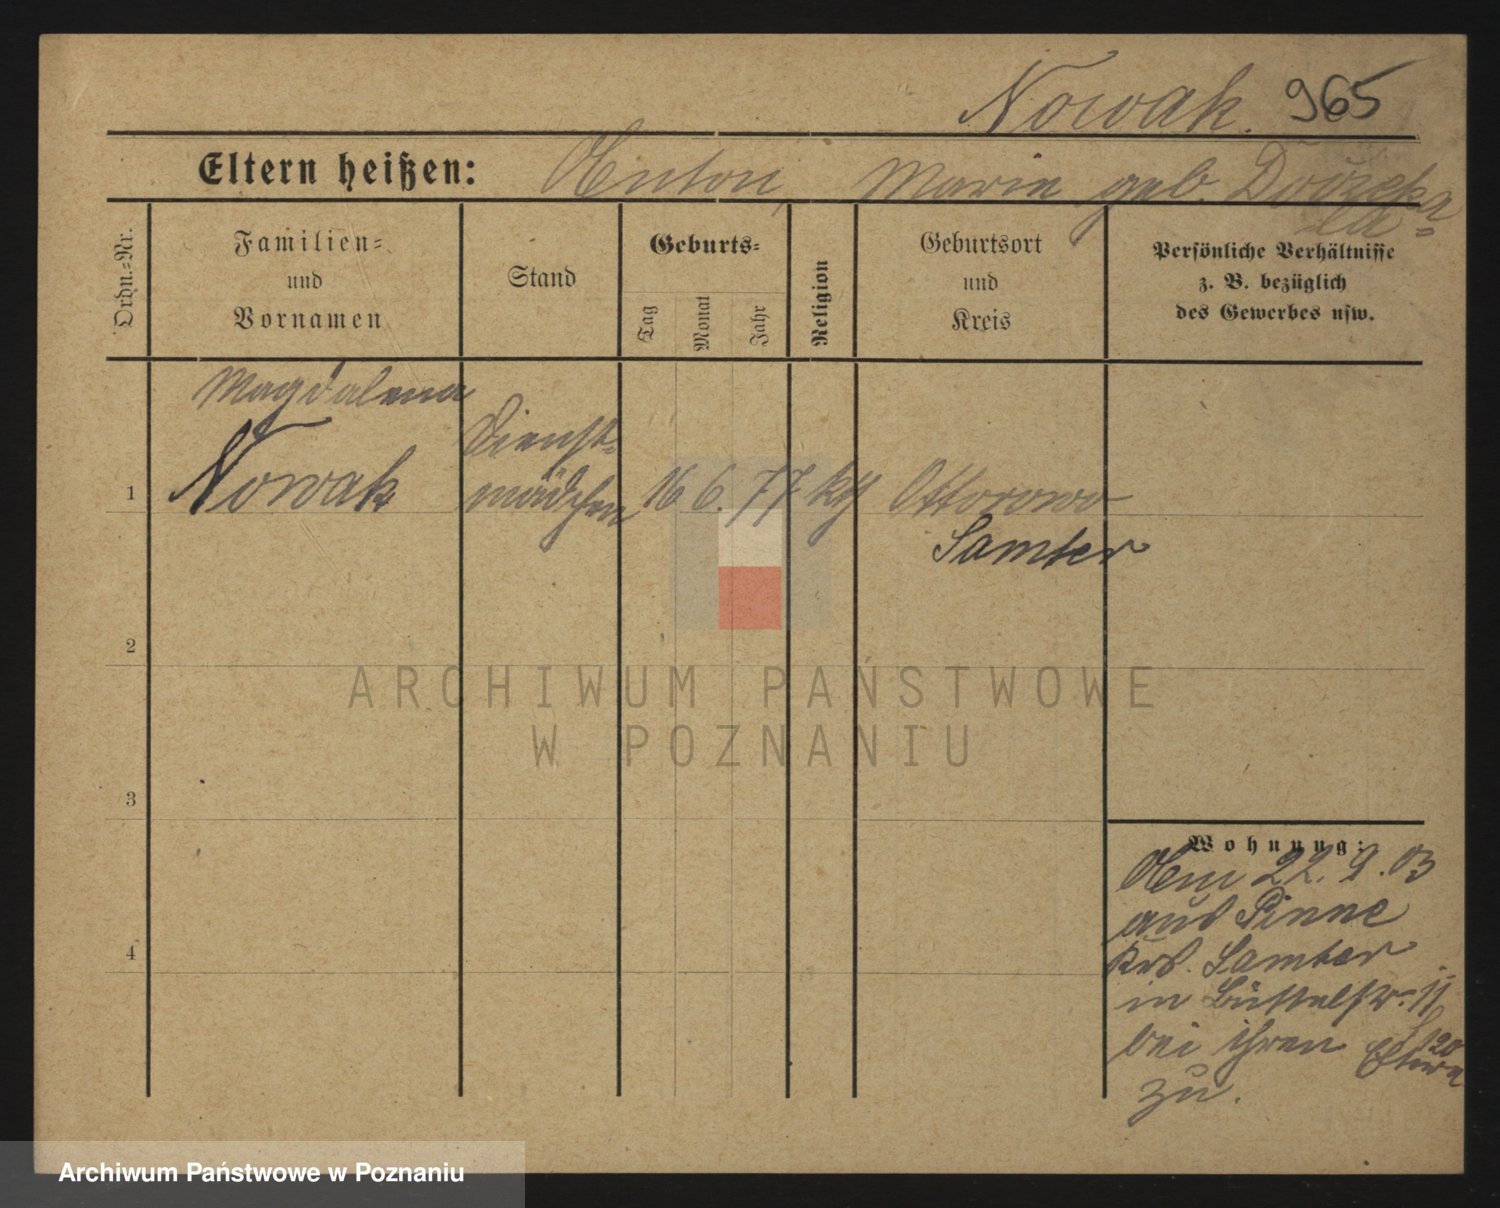 Nowak. 965
Eltern heißen: Anton, Marie geb.
Ordn.-Nr.
Familien-
und
Vornamen
Stand
Geburts-
Tag
Monat
Jahr
Religion
Geburtsort
und
Kreis
Persönliche Verhältnisse
z. B. bezüglich
des Gewerbes usw.
Magdalena
1 Nowak
Dienst-
mädchen
16 6. 77 kth
Ottorowo
Samter
2
3
4
Wohnung:
Am 22. 9. 03
aus Pinne
Krs. Samter
in 11
bei ihren Eltern
zu.
ARCHIWUM PAŃSTWOWE
W POZNANIU
Archiwum Państwowe w Poznaniu